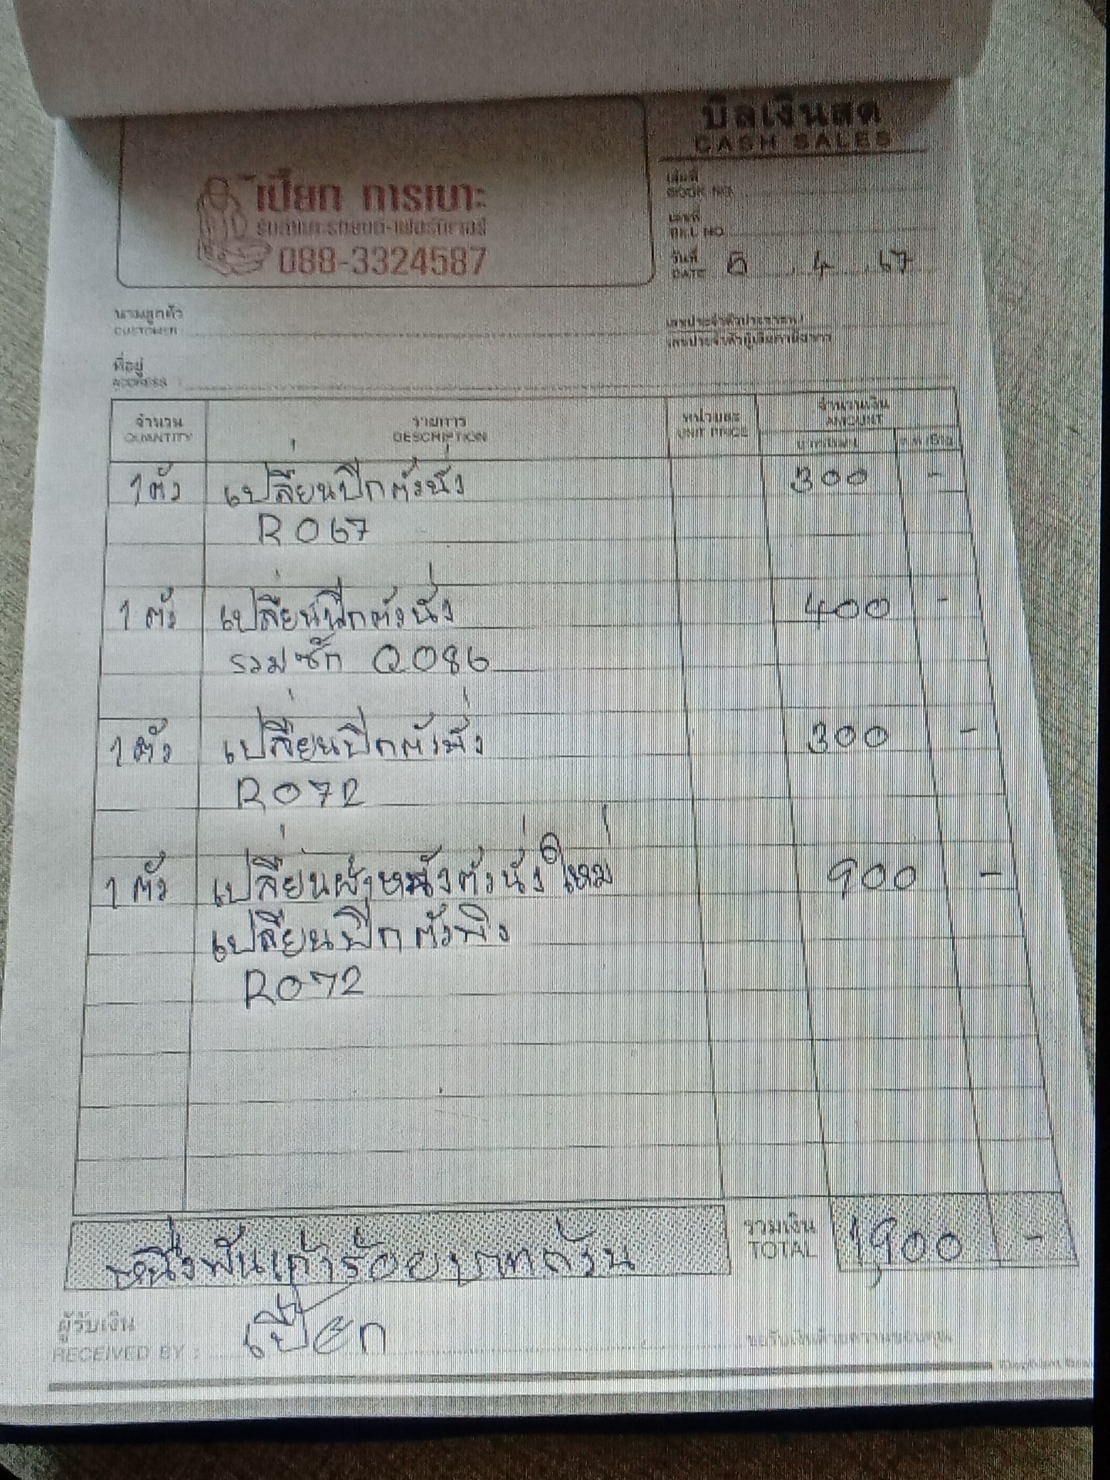 บิลเงินสด
CASH SALES
เปี๊ยก การเบาะ
รับทำเบาะรถยนต์-เฟอร์นิเจอร์
088-3324587
เล่มที่
BOOK NO.
เลขที่
BILL NO.
วันที่
DATE 5 4 67
นามลูกค้า
CUSTOMER
เลขประจำตัวประชาชน/
เลขประจำตัวผู้เสียภาษีอากร
ที่อยู่
ADDRESS :
จำนวน รายการ หน่วยละ จำนวนเงิน
QUANTITY DESCRIPTION UNIT PRICE AMOUNT
1 ตัว เปลี่ยนปีกตัวนั่ง 300 -
R067
1 ตัว เปลี่ยนปีกตัวนั่ง 400 -
รวมซัก Q086
1 ตัว เปลี่ยนปีกตัวพิง 300 -
R072
1 ตัว เปลี่ยนผ้าหนังตัวนั่งใหม่ 900 -
เปลี่ยนปีกตัวพิง
R072
หนึ่งพันเก้าร้อยบาทถ้วน
รวมเงิน
TOTAL 1,900 -
ผู้รับเงิน
RECEIVED BY : เปี๊ยก
ขอรับเงินด้วยความขอบคุณ